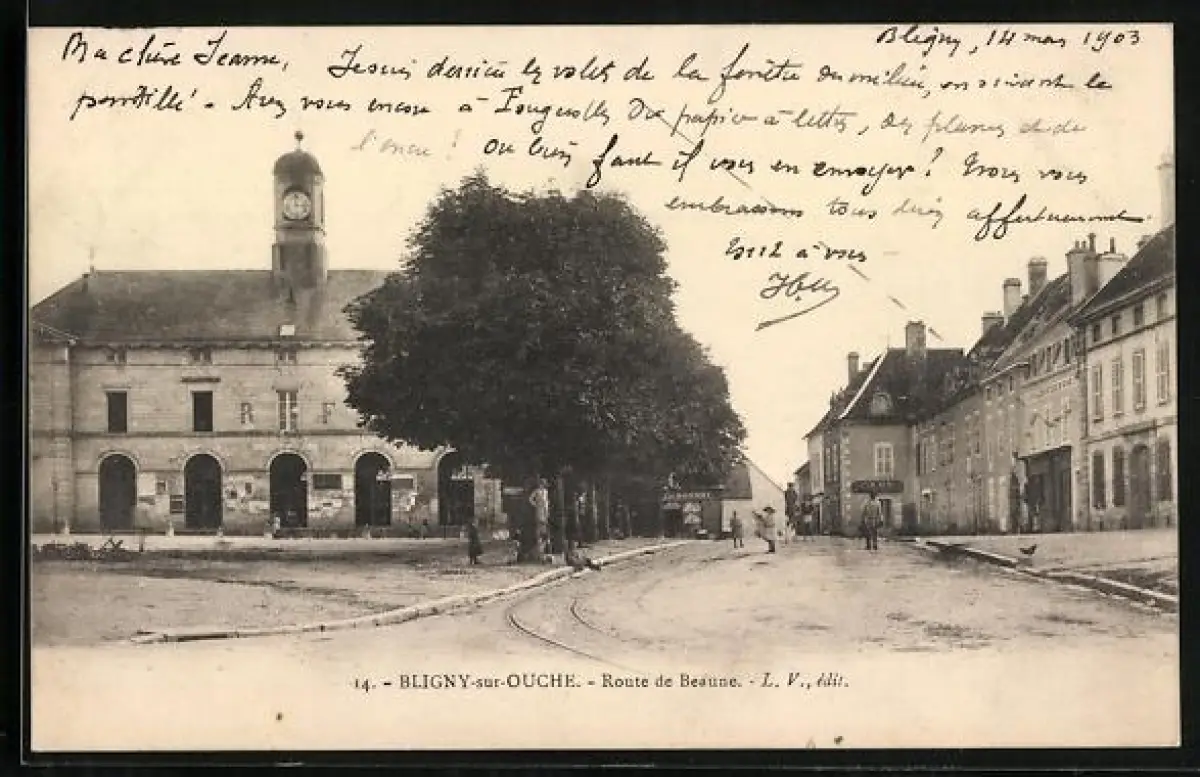 Bligny, 14 mars 1903
Ma chère Jeanne, Je suis derrière les volets de la fenêtre du milieu, en suivant le
pointillé. Avez vous encore à Fougerolles du papier à lettres, des plumes et de
l'encre ! Ou bien faut il vous en envoyer ? Nous vous
embrassons tous bien affectueusement
à vous
R F
14. - BLIGNY-sur-OUCHE. - Route de Beaune. - L. V., édit.